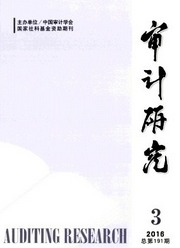 主办单位/中国审计学会
国家社科基金资助期刊
审计研究
AUDITING RESEARCH
3
2016
总第191期